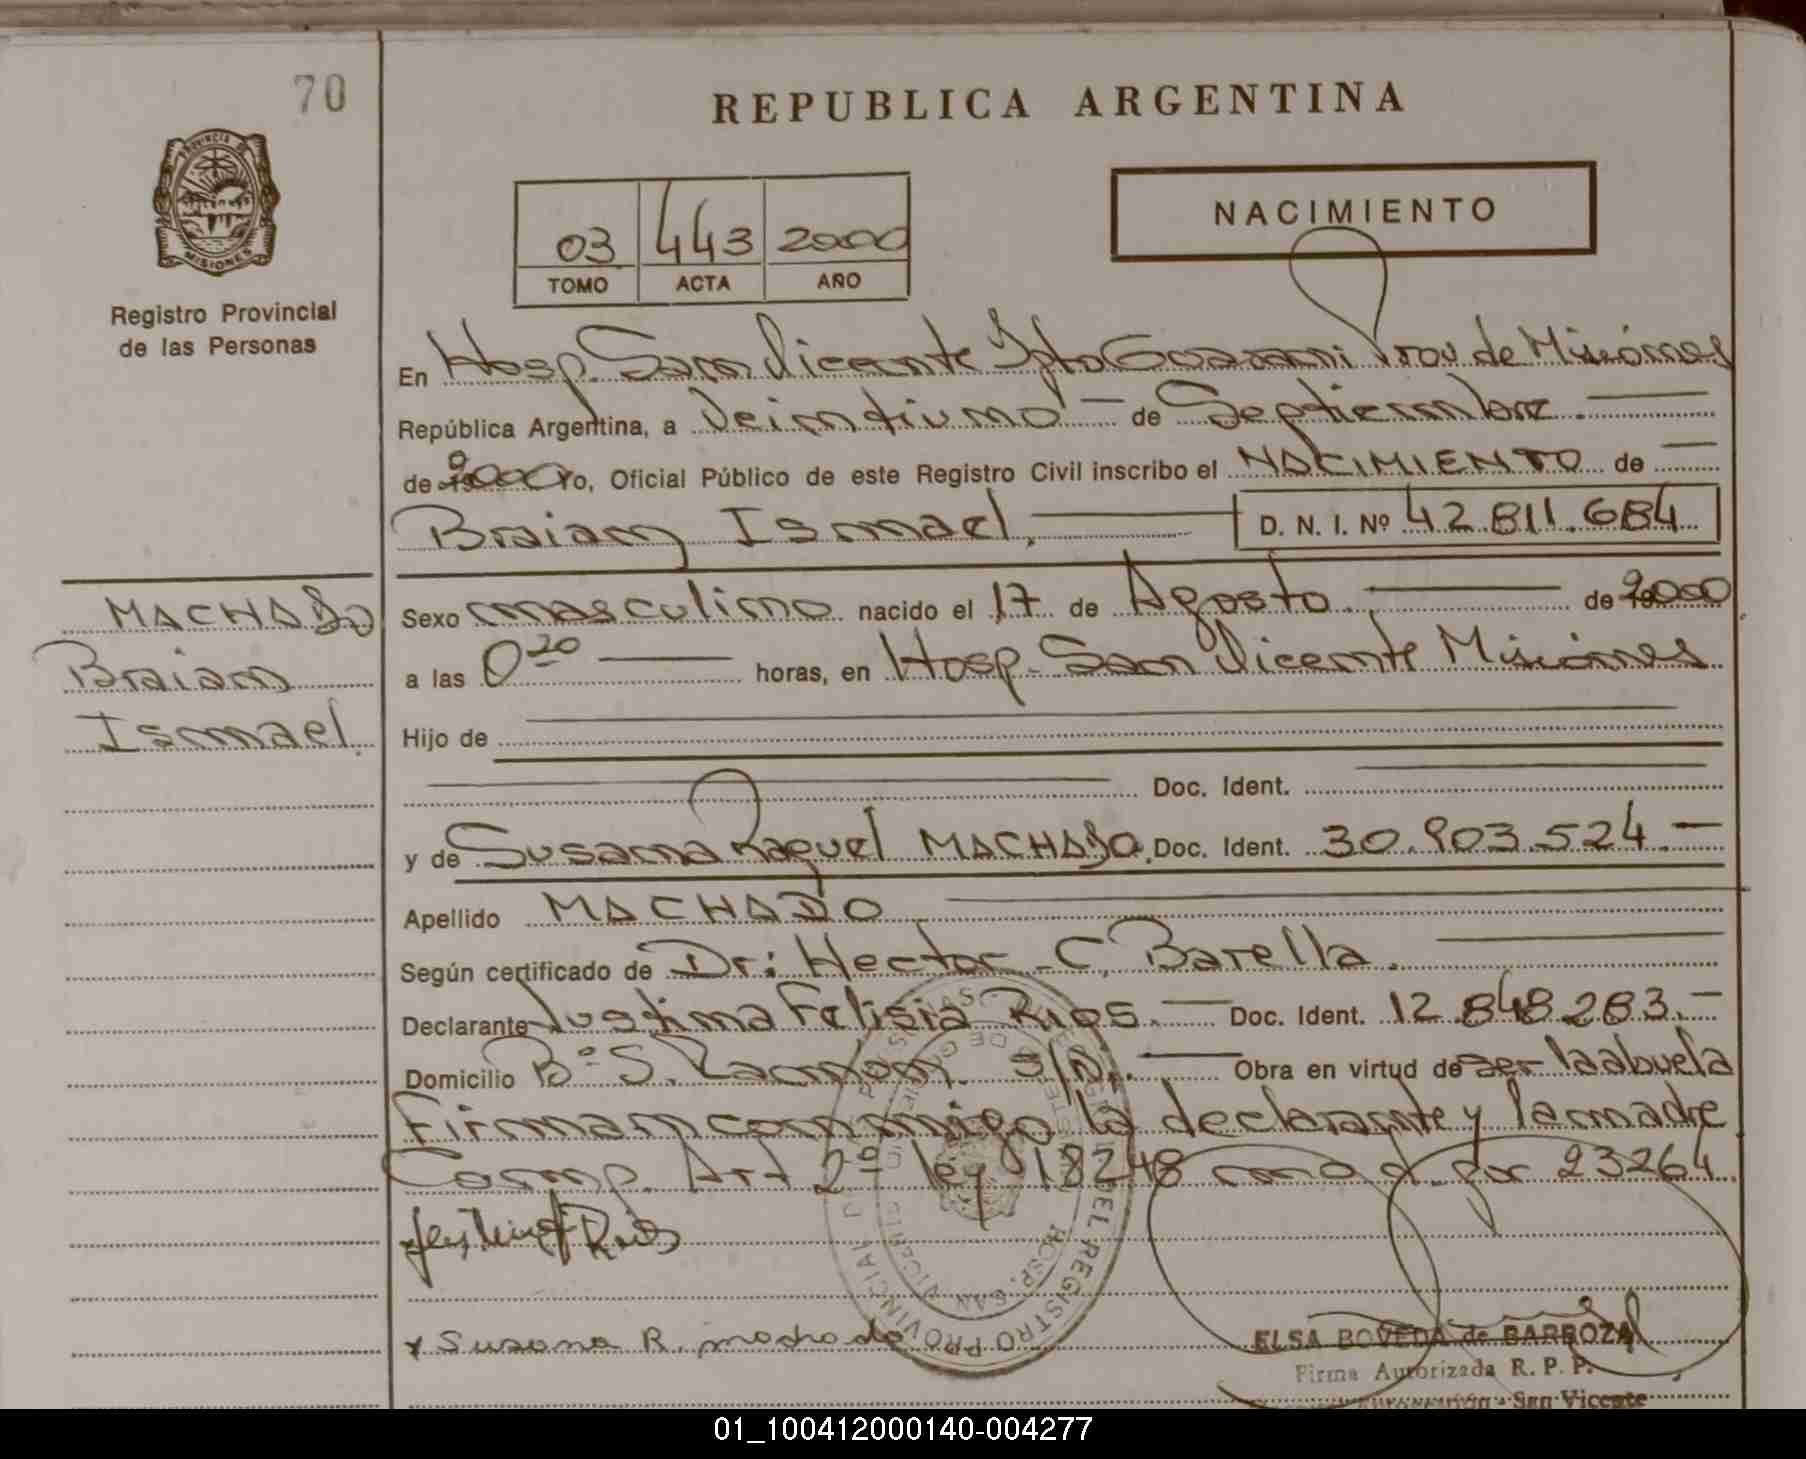 70
REPUBLICA ARGENTINA
PROVINCIA DE MISIONES
Registro Provincial
de las Personas
NACIMIENTO
03 443 2000
TOMO ACTA AÑO
En Hosp. San Vicente Dpto Guarani Prov. de Misiones
República Argentina, a Veintiuno de Septiembre.
de 2000 Yo, Oficial Público de este Registro Civil inscribo el NACIMIENTO de
Braian Ismael, D. N. I. Nº 42.811.684
MACHADO
Braian
Ismael.
Sexo masculino nacido el 17 de Agosto. de 2000
a las 0 20 horas, en Hosp. San Vicente Misiones
Hijo de
Doc. Ident.
y de Susana Raquel MACHADO. Doc. Ident. 30.903.524.
Apellido MACHADO
Según certificado de Dr: Hector C. Barella.
Declarante Justina Felisia Rios. Doc. Ident. 12.848.283.
Domicilio Bº S. S/N. Obra en virtud de ser la abuela
Firman conmigo la declarante y la madre
Comp. Art 2º ley 18248 mod. por 23264.
x Susana R. machado
ELSA BOVEDA de BARBOZA
Firma Autorizada R. P. P.
San Vicente
REGISTRO PROVINCIAL DE
HOSP. SAN VICENTE
01_100412000140-004277